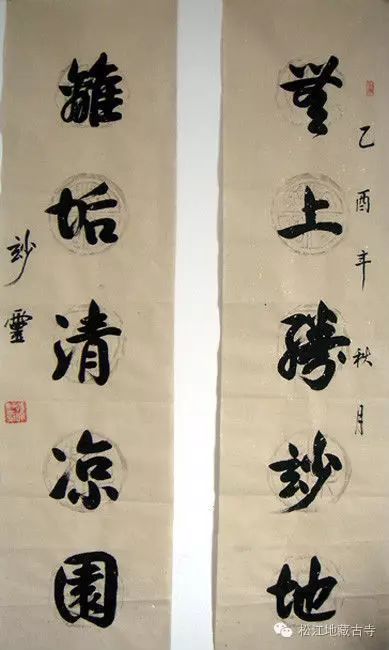 乙酉年秋月
無上勝玅地
離垢清凉園
玅靈
松江地藏古寺